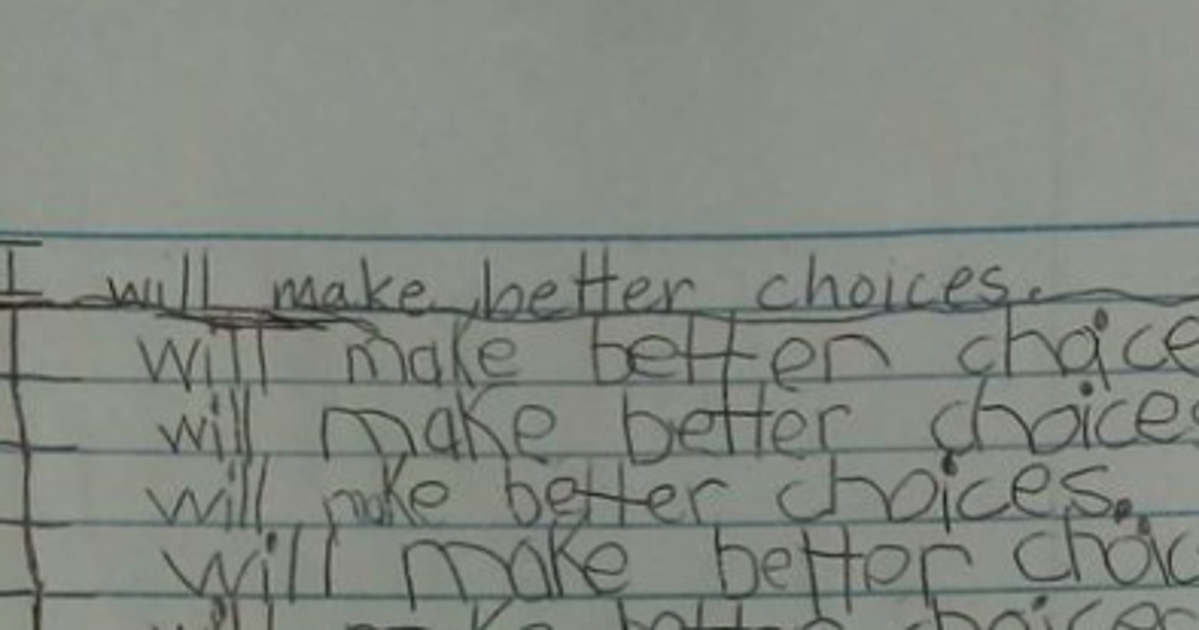 I will make better choices.
I will make better choice
I will make better choices
I will make better choices.
I will make better choic
will make better choices